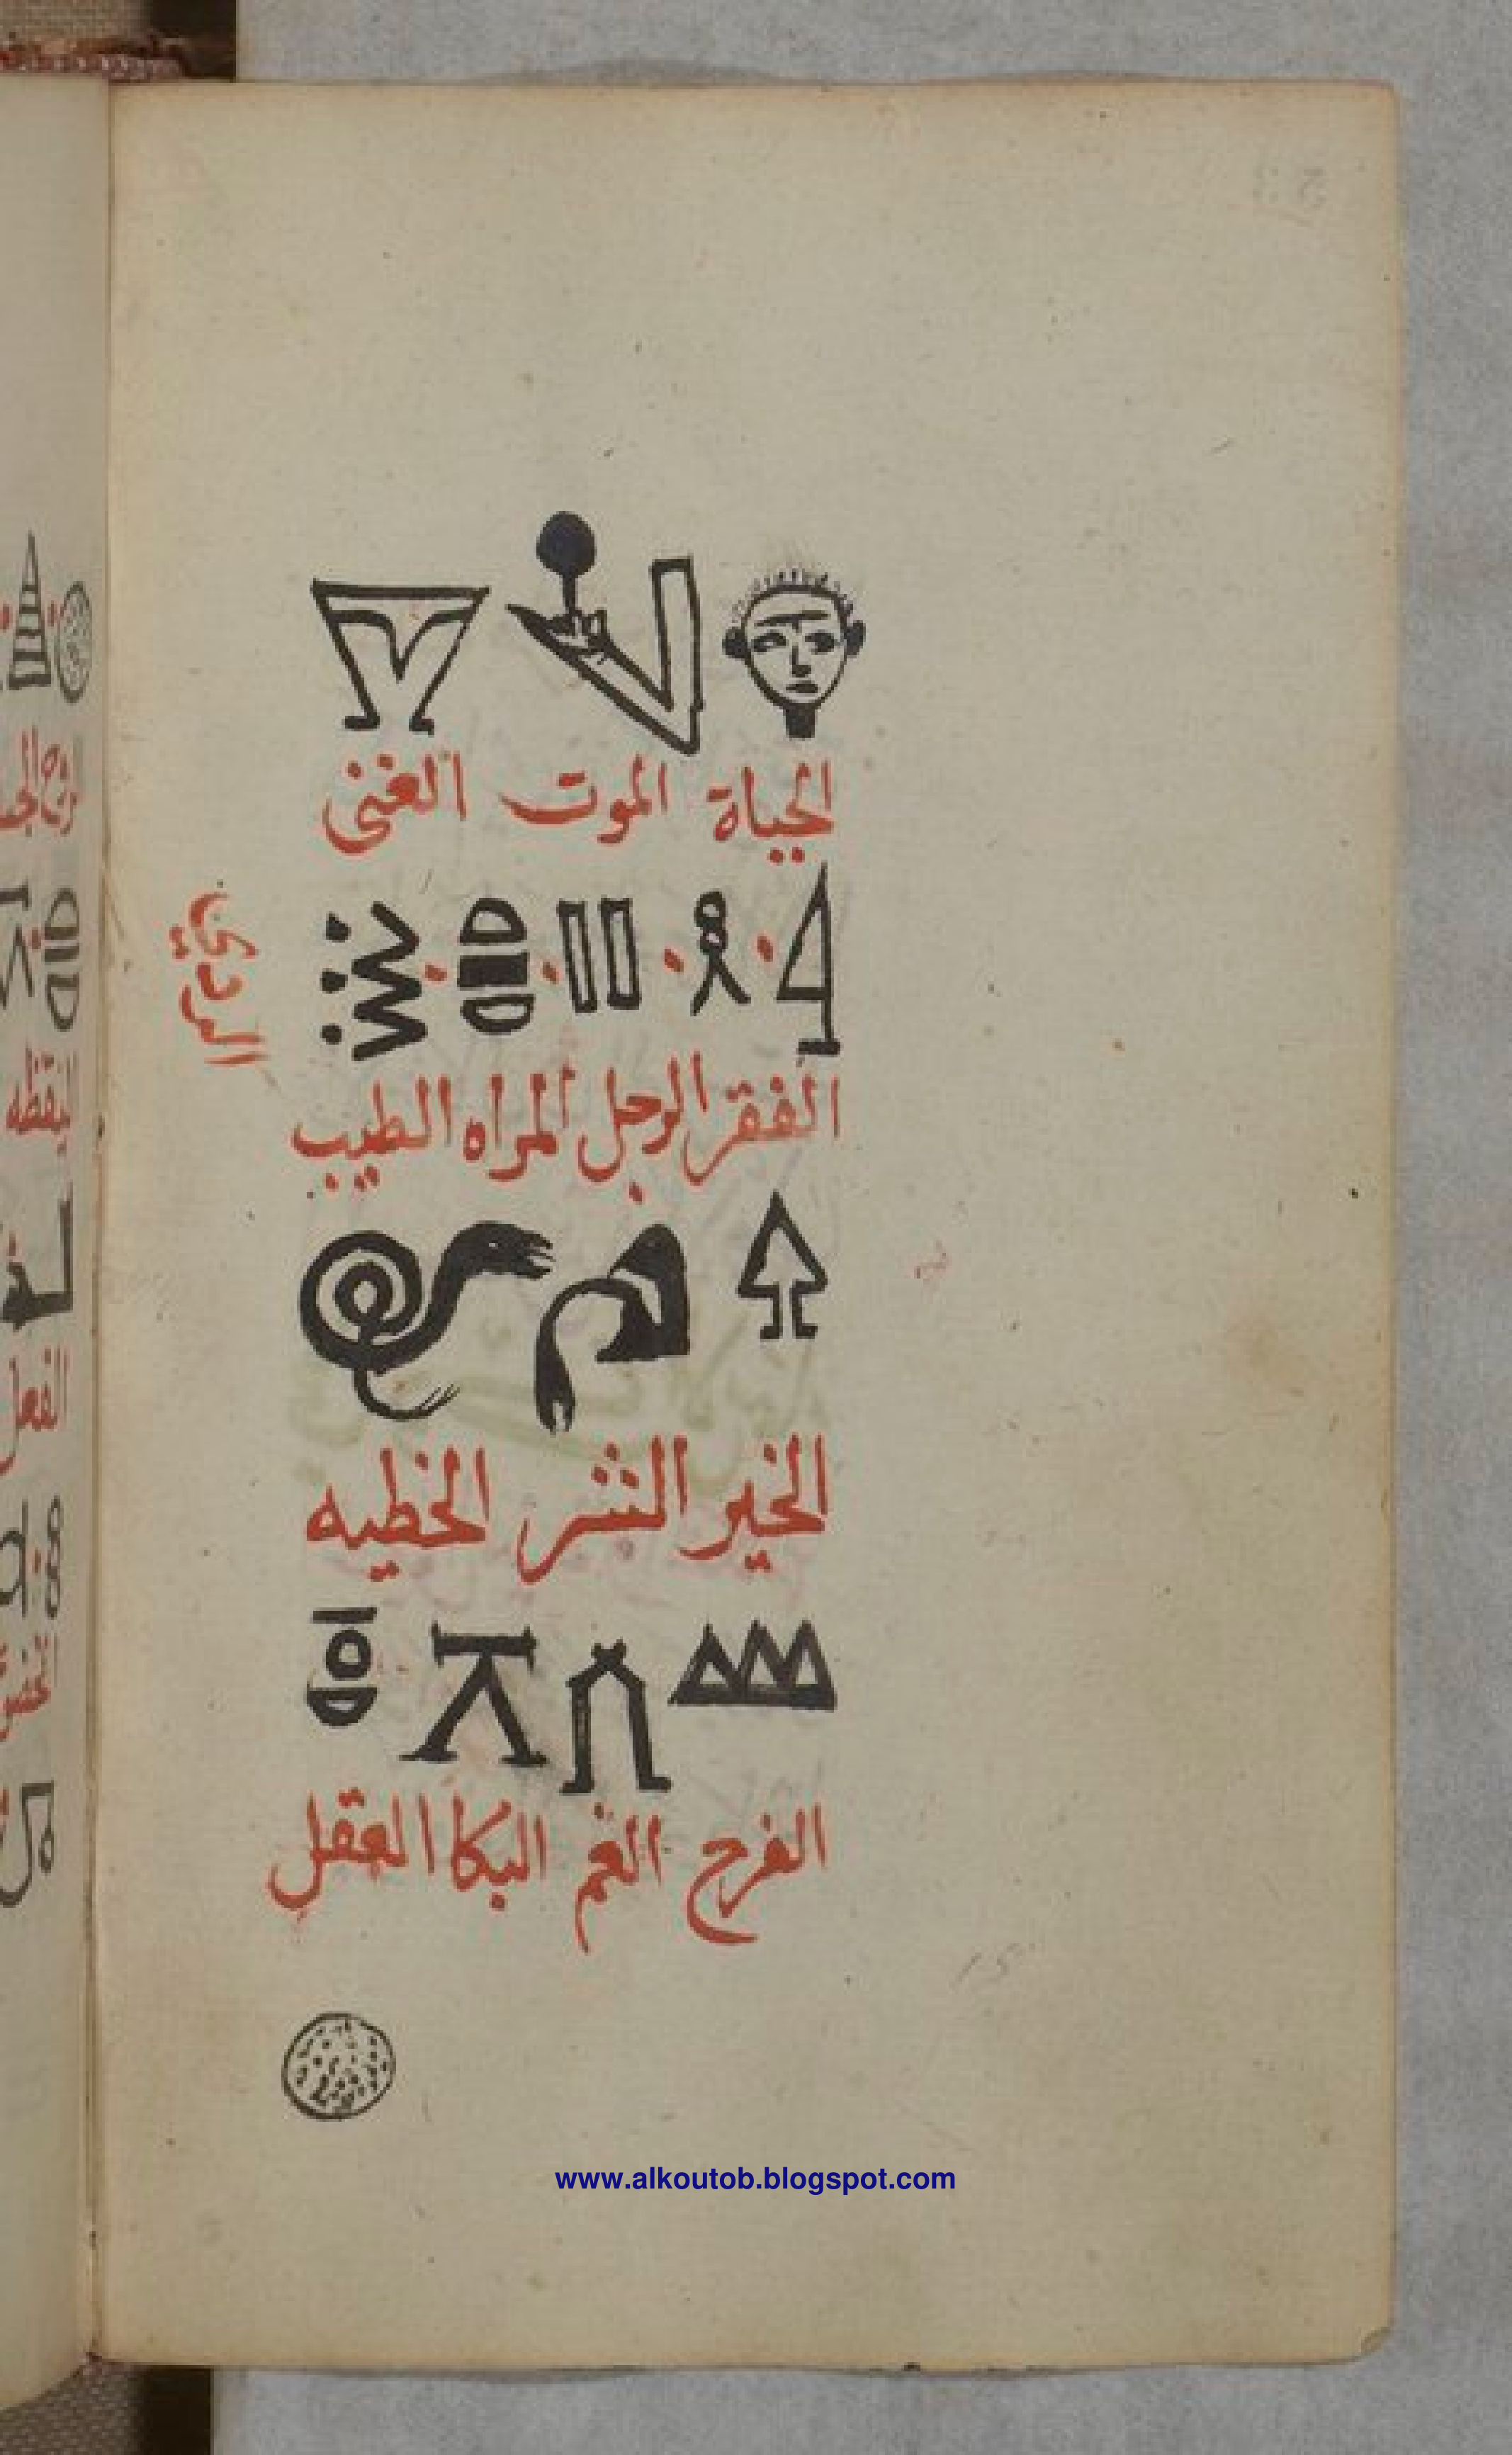 الحياة الموت الغنى
الفقر الرجل المراه الطيب
الردي
الخير الشر الخطيه
الفرح الغم البكا العقل
15
www.alkoutob.blogspot.com